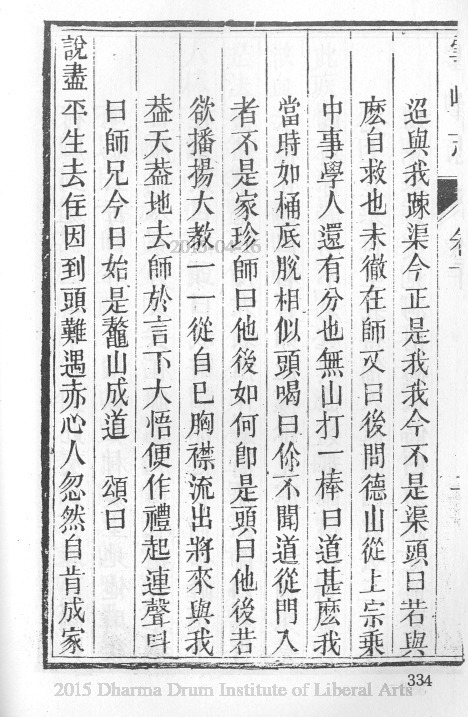 迢與我踈渠今正是我我今不是渠頭曰若與
麽自救也未徹在師又曰後問德山從上宗乗
中事學人還有分也無山打一棒曰道甚麽我
當時如桶底脫相似頭喝曰你不聞道從門入
者不是家珍師曰他後如何卽是頭曰他後若
欲播揚大教一一從自已胸襟流出將來與我
葢天葢地去師於言下大悟便作禮起連聲呌
曰師兄今日始是鼇山成道 頌曰
說盡平生去住因到頭難遇赤心人忽然自肯成家
334
2015 Dharma Drum Institute of Liberal Arts